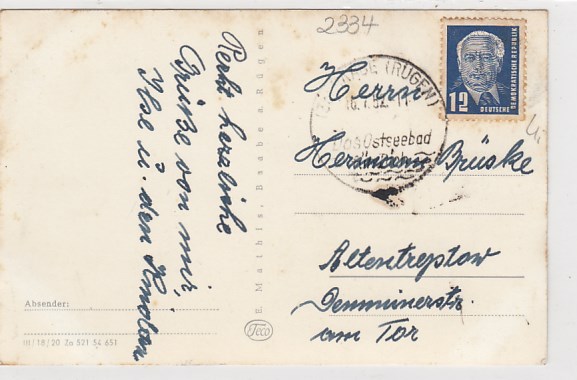 2334
Recht herzliche
Grüße von mir,
Ilse u. den
Absender:
III/18/20 Zo 521 54 651
E. Mathis, Baabe a. Rügen
Teco
(RÜGEN)
Das Ostseebad
12
DEUTSCHE
DEMOKRATISCHE REPUBLIK
Herrn
Hermann Brüske
Altentreptow
Demminerstr.
am Tor